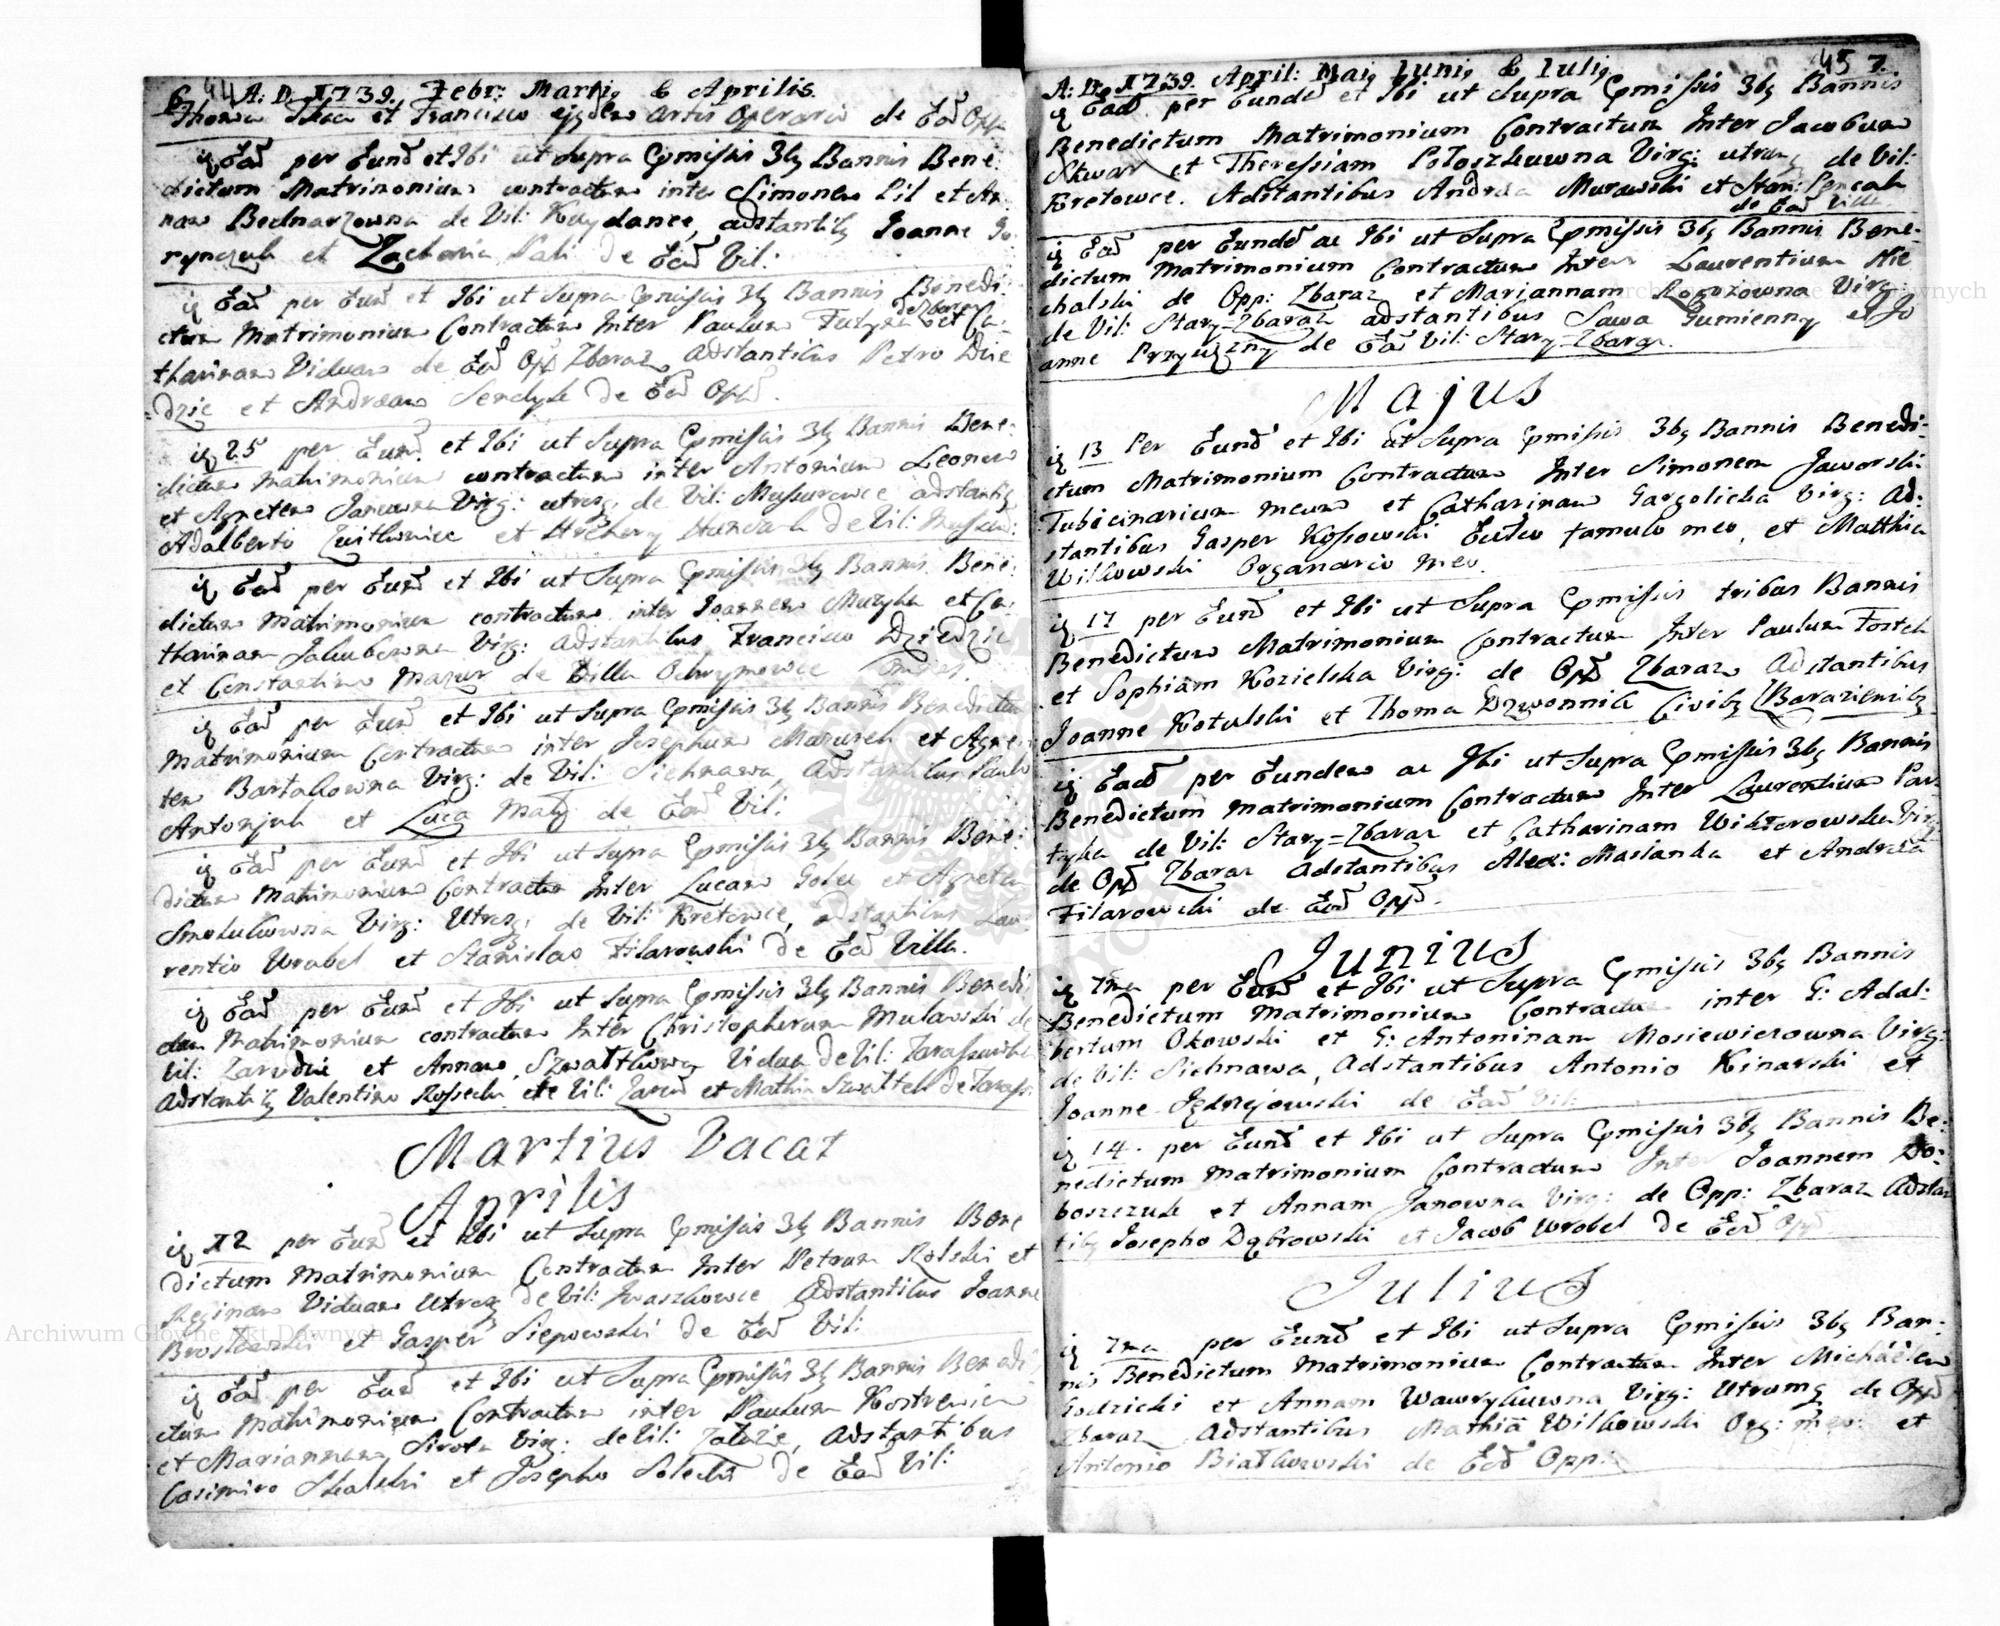 6. 44 A: D. 1739. Febr: Martij, & Aprilis.
Thoma et Francisco ejusdem artis Operario de Ead Opp
iz Ead per Eund et Ibi ut Supra Pmissis 3bz Bannis Bene:
dictum Matrimonium contractum inter Simonem Pil et An:
nam Bednarzowna de Vil: Kaydance, adstantibz Joanne Ho
rynczuk et Zacharia Pali de Ead Vil:
iz Ead per Eund et Ibi ut Supra Pmissis 3bz Bannis Benedi:
de Zbaraz
ctum Matrimonium Contractum Inter Paulum et Ca:
tharinam Viduam de Ead Opp Zbaraz, Adstantibus Petro Dzie
dzic et Andraea Senczyk de Ead Oppd.
iz 25 per Eund. et Ibi ut Supra Pmissis 3bz Bannis Bene:
dictum Matrimonium contractum inter Antonium Leonow
et Agnetem Janowna Virg: utrosq, de Vil: Mussurowce adstantibz
Adalberto et Hrehory de Vil: Mussur:
iz Ead per Eund et Ibi ut Supra Pmissis 3bz Bannis Bene:
dictum Matrimonium contractum inter Joannem Muzyka et Ca:
tharinam Jakubowna Virg: adstantibus Francisco Dziedzic
et Constantino Mazur de Villa Ochrymowce Omnes.
iz Ead per Eund et Ibi ut Supra Pmissis 3bz Bannis Benedictum
Matrimonium Contractum inter Josephum Mazurek et Agne:
tem Bartakowna Virg: de Vil: Sichnawa, Adstantibus Paulo
Antonjuk et Luca Maly de Ead Vil:
iz Ead per Eund et Ibi ut Supra Pmissis 3bz Bannis Bene:
dictum Matrimonium Contractum Inter Lucam Golec et Agnetem
Smolukowna Virg: Utrosq, de Vil: Kretowce, adstantibus Lau:
rentio Wrobel et Stanislao Filarowski de Ead Villa.
iz Ead per Eund et Ibi ut Supra Pmissis 3bz Bannis Benedi
ctum Matrimonium contractum Inter Christopherum Mulawski de
Vil: Zarudzie et Annam Viduam de Vil:
Adstantibz Valentino de Vil: Zarud et Mathia de
Martius Vacat
Aprilis
iz 12 per Eund et Ibi ut Supra Pmissis 3bz Bannis Bene
dictum Matrimonium Contractum Inter Petrum Rolski et
Reginam Viduam Utrosq de Vil: Iwaszkowce Adstantibus Joanne
et Gasper Siepowski de Ead Vil:
iz Ead per Eund et Ibi ut Supra Pmissis 3bz Bannis Benedi
ctum Matrimonium Contractum inter Paulum
et Mariannam Sirota Virg: de Vil: Zaluze, Adstantibus
Casimiro Skalski et Josepho Solecki de Ead Vil:
A: D. 1739. April: Maij, Junij, & Julij, 45 7.
iz Ead per Eund et Ibi ut Supra Pmissis 3bz Bannis
Benedictum Matrimonium Contractum Inter Jacobum
Skwar et Theressiam Potoszkuwna Virg: utrumq de Vil:
Kretowce. Adstantibus Andrea Murawski et Stan:
de Ead Villa
iz Ead per Eundd ac Ibi ut Supra Pmissis 3bz Bannis Bene:
dictum Matrimonium Contractum Inter Laurentium Mie
chalski de Opp: Zbaraz et Mariannam Rogozowna Virg:
de Vil: Stary=Zbaraz adstantibus Sawa Gumienny et Jo
anne de Ead Vil: Stary=Zbaraz.
Majus
iz 13 Per Eund et Ibi ut Supra Pmissis 3bz Bannis Benedi:
ctum Matrimonium Contractum Inter Simonem Jaworski
Tubicinarium meum et Catharinam Gargolicka Virg: Ad:
stantibus Gasper Kossowski famulo meo, et Matthia
Wilkowski Organario meo.
iz 17 per Eund et Ibi ut Supra Pmissis tribus Bannis
Benedictum Matrimonium Contractum Inter Paulum Fostek
et Sophiam Kozielska Virg: de Opd Zbaraz Adstantibus
Joanne Kotulski et Thoma Dzwonnik Civibz Zbaraziensibz
iz Ead per Eundem ac Ibi ut Supra Pmissis 3bz Bannis
Benedictum Matrimonium Contractum Inter Laurentium Par:
tyka de Vil: Stary=Zbaraz et Catharinam Wiktorowska Virg
de Opd Zbaraz Adstantibus Alex: Maslanka et Andrea
Filarowski de Ead Oppd.
Junius
iz 7ma per Eund et Ibi ut Supra Pmissis 3bz Bannis
Benedictum Matrimonium Contractum inter G: Adal:
bertum Okowski et G: Antoninam Mosiewiczowna Virg:
de Vil: Sichnawa, Adstantibus Antonio Kinarski et
Joanne Jędrzejowski de Ead Vil:
iz 14. per Eund et Ibi ut Supra Pmissis 3bz Bannis Be:
nedictum Matrimonium Contractum Inter Joannem Do:
boszczuk et Annam Janowna Virg: de Opp: Zbaraz Adstan
tibz Josepho Dąbrowski et Jacob Wrobel de Ead Opp
Julius
iz 7ma per Eund et Ibi ut Supra Pmissis 3bz Ban:
nis Benedictum Matrimonium Contractum Inter Michaelem
Godzicki et Annam Wawrykuwna Virg: Utrumq de Opp
Zbaraz Adstantibus Mathia Wilkowski Org: meo: et
Antonio Białkowski de Ead Opp:
Archiwum Główne Akt Dawnych
Archiwum Główne Akt Dawnych